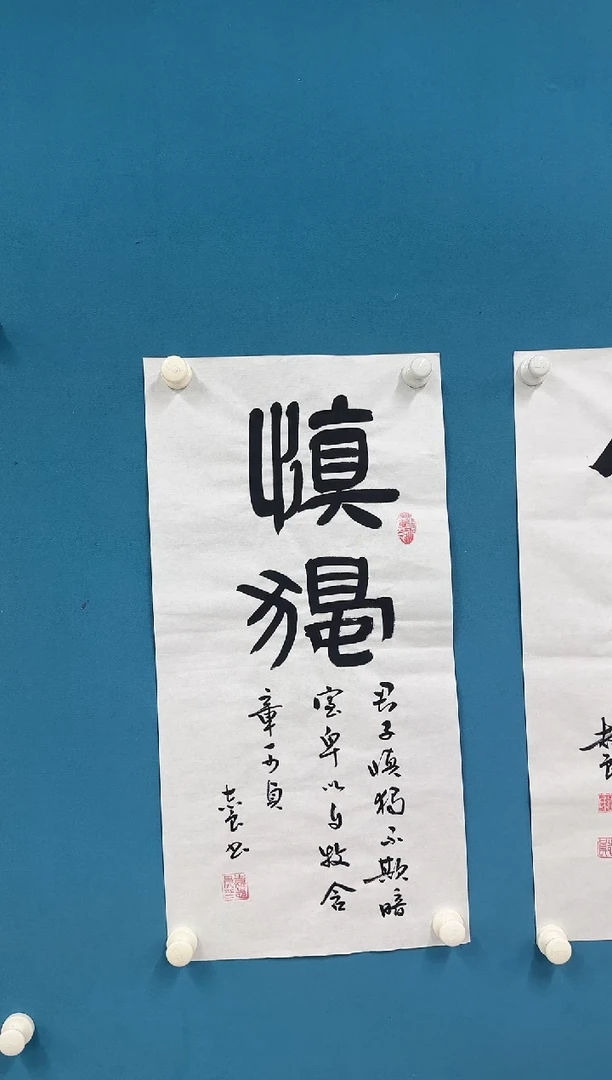 慎獨
君子慎獨不欺暗
室卑以自牧含
章可貞